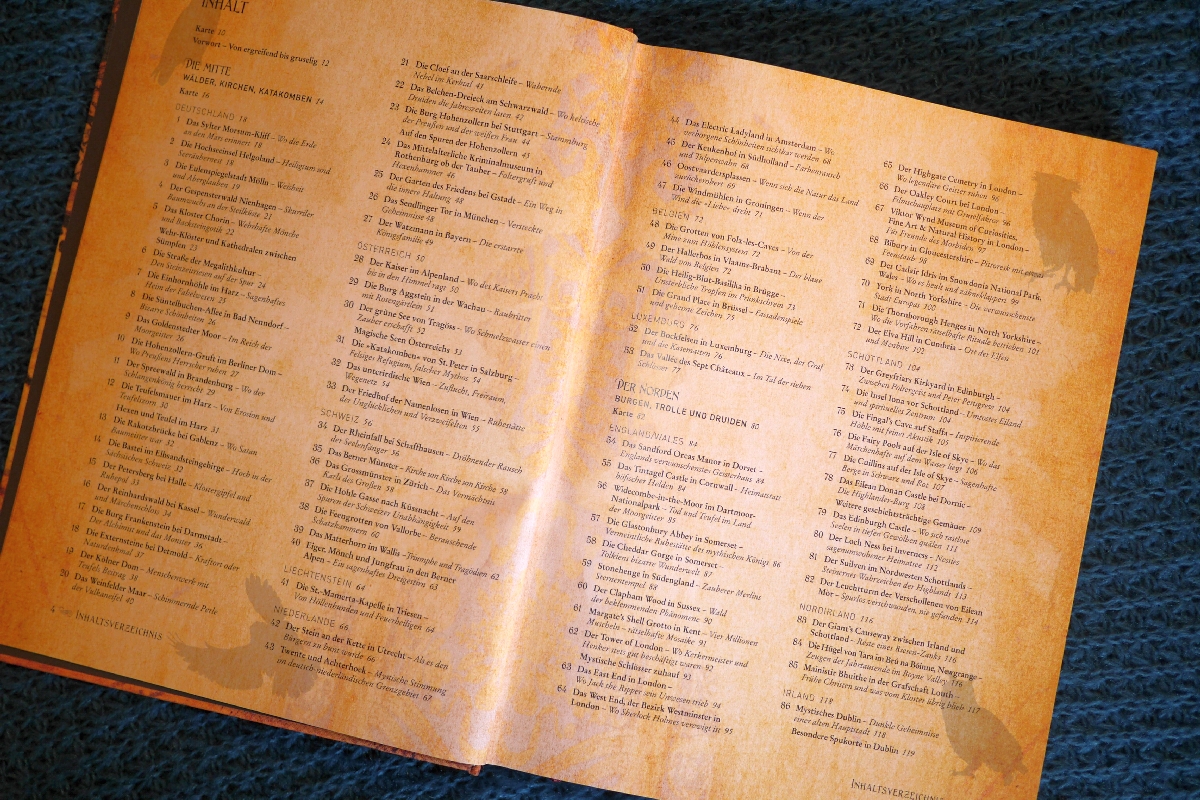 INHALT
Karte 10
Vorwort – Von ergreifend bis gruselig 12
DIE MITTE
WÄLDER, KIRCHEN, KATAKOMBEN 14
Karte 16
DEUTSCHLAND 18
1 Das Sylter Morsum-Kliff – Wo die Erde
an den Mars erinnert 18
2 Die Hochseeinsel Helgoland – Heiligtum und
3 Die Eulenspiegelstadt Mölln – Weisheit
und Aberglaube 19
4 Der Gespensterwald Nienhagen – Skurriler
Baumwuchs an der Steilküste 21
5 Das Kloster Chorin – Wehrhafte Mönche
und Backsteingotik 22
Wehr-Klöster und Kathedralen zwischen
Sümpfen 23
6 Die Straße der Megalithkultur –
Den Steinzeitriesen auf der Spur 24
7 Die Einhornhöhle im Harz – Sagenhaftes
Heim der Fabelwesen 25
8 Die Süntelbuchen-Allee in Bad Nenndorf –
Bizarre Schönheiten 26
9 Das Goldenstedter Moor – Im Reich der
Moorgeister 26
10 Die Hohenzollern-Gruft im Berliner Dom –
Wo Preußens Herrscher ruhen 27
11 Der Spreewald in Brandenburg – Wo der
Schlangenkönig herrscht 29
12 Die Teufelsmauer im Harz – Von Erosion und
Teufelszorn 30
Hexen und Teufel im Harz 31
13 Die Rakotzbrücke bei Gablenz – Wo Satan
Baumeister war 32
14 Die Bastei im Elbsandsteingebirge – Hoch in der
Sächsischen Schweiz 32
15 Der Petersberg bei Halle – Klostergipfel und
Ruhepol 33
16 Der Reinhardswald bei Kassel – Wunderwald
und Märchenschloss 34
17 Die Burg Frankenstein bei Darmstadt –
Der Alchimist und das Monster 36
18 Die Externsteine bei Detmold – Kraftort oder
Naturdenkmal 37
19 Der Kölner Dom – Menschenwerk mit
Teufels Beitrag 38
20 Das Weinfelder Maar – Schimmernde Perle
der Vulkaneifel 40
21 Die Cloef an der Saarschleife – Wabernde
Nebel im Kerbtal 41
22 Das Belchen-Dreieck am Schwarzwald – Wo keltische
Druiden die Jahreszeiten lasen 42
23 Die Burg Hohenzollern bei Stuttgart – Stammburg
der Preußen und der weißen Frau 44
Auf den Spuren der Hohenzollern 45
24 Das Mittelalterliche Kriminalmuseum in
Rothenburg ob der Tauber – Foltergruft und
Hexenhammer 46
25 Der Garten des Friedens bei Gstadt – Ein Weg in
die innere Haltung 48
26 Das Sendlinger Tor in München – Versteckte
Geheimnisse 48
27 Der Watzmann in Bayern – Die erstarrte
Königsfamilie 49
ÖSTERREICH 50
28 Der Kaiser im Alpenland – Wo des Kaisers Pracht
bis in den Himmel ragt 50
29 Die Burg Aggstein in der Wachau – Raubritter
mit Rosengärtlein 51
30 Der grüne See von Tragöss – Wo Schmelzwasser einen
Zauber erschafft 52
Magische Seen Österreichs 53
31 Die «Katakomben» von St. Peter in Salzburg –
Felsige Refugium, falscher Mythos 54
32 Das unterirdische Wien – Zuflucht, Freiraum,
Wegenetz 54
33 Der Friedhof der Namenlosen in Wien – Ruhestätte
der Unglücklichen und Verzweifelten 55
SCHWEIZ 56
34 Der Rheinfall bei Schaffhausen – Dröhnender Rausch
der Seelenfänger 56
35 Das Berner Münster – Kirche um Kirche um Kirche 58
36 Das Grossmünster in Zürich – Das Vermächtnis
Karls des Großen 58
37 Die Hohle Gasse nach Küssnacht – Auf den
Spuren der Schweizer Unabhängigkeit 59
38 Die Feengrotten von Vallorbe – Berauschende
Schatzkammern 60
39 Das Matterhorn im Wallis – Triumphe und Tragödien 62
40 Eiger, Mönch und Jungfrau in den Berner
Alpen – Ein sagenhaftes Dreigestirn 63
LIECHTENSTEIN 64
41 Die St.-Mamerta-Kapelle in Triesen –
Von Höllenhunden und Feuerheiligen 64
NIEDERLANDE 66
42 Der Stein an der Kette in Utrecht – Als es den
Bürgern zu bunt wurde 66
43 Twente und Achterhoek – Mystische Stimmung
im deutsch-niederländischen Grenzgebiet 67
4 INHALTSVERZEICHNIS
44 Das Electric Ladyland in Amsterdam – Wo
verborgene Schönheiten sichtbar werden 68
45 Der Keukenhof in Südholland – Farbenrausch
und Tulpenwahn 68
46 Oostvaardersplassen – Wenn sich die Natur das Land
zurückerobert 69
47 Die Windmühlen in Groningen – Wenn der
Wind die «Liebe» dreht 71
BELGIEN 72
48 Die Grotten von Folx-les-Caves – Von der
Mine zum Höhlensystem 72
49 Der Hallerbos in Vlaams-Brabant – Der blaue
Wald von Belgien 72
50 Die Heilig-Blut-Basilika in Brügge –
Unsterbliche Tropfen im Prunkschrein 73
51 Die Grand Place in Brüssel – Fassadenspiele
und geheime Zeichen 75
LUXEMBURG 76
52 Der Bockfelsen in Luxemburg – Die Nixe, der Graf
und die Kasematten 76
53 Das Vallée des Sept Châteaux – Im Tal der sieben
Schlösser 77
DER NORDEN
BURGEN, TROLLE UND DRUIDEN 80
Karte 82
ENGLAND/WALES 84
54 Das Sandford Orcas Manor in Dorset –
Englands verwunschenstes Geisterhaus 84
55 Das Tintagel Castle in Cornwall – Heimatstatt
höfischer Helden 84
56 Widecombe-in-the-Moor im Dartmoor-
Nationalpark – Tod und Teufel im Land
der Moorgeister 85
57 Die Glastonbury Abbey in Somerset –
Vermeintliche Ruhestätte des mythischen Königs 86
58 Die Cheddar Gorge in Somerset –
Tolkiens bizarre Wunderwelt 87
59 Stonehenge in Südengland – Zauberer Merlins
Sternentempel 88
60 Der Clapham Wood in Sussex – Wald
der beklemmenden Phänomene 90
61 Margate's Shell Grotto in Kent – Vier Millionen
Muscheln – rätselhafte Mosaike 91
62 Der Tower of London – Wo Kerkermeister und
Henker stets gut beschäftigt waren 92
Mystische Schlösser zuhauf 93
63 Das East End in London –
Wo Jack the Ripper sein Unwesen trieb 94
64 Das West End, der Bezirk Westminster in
London – Wo Sherlock Holmes verewigt ist 95
65 Der Highgate Cemetry in London –
Wo legendäre Geister ruhen 96
66 Der Oakley Court bei London –
Filmschauplatz mit Gruselfaktor 96
67 Viktor Wynd Museum of Curiosities,
Fine Art & Natural History in London –
Für Freunde des Morbiden 97
68 Bibury in Gloucestershire – Pittoresk mit
Feenstaub 98
69 Der Cadair Idris im Snowdonia National Park,
Wales – Wo es heult und zähneklappert 99
70 York in North Yorkshire – Die verwunschenste
Stadt Europas 100
71 Die Thornborough Henges in North Yorkshire –
Wo die Vorfahren rätselhafte Rituale betrieben 101
72 Der Elva Hill in Cumbria – Ort der Elfen
und Menhire 102
SCHOTTLAND 104
73 Der Greyfriars Kirkyard in Edinburgh –
Zwischen Poltergeist und Peter Pettigrew 104
74 Die Insel Iona vor Schottland – Umtostes Eiland
und spirituelles Zentrum 104
75 Die Fingal's Cave auf Staffa – Inspirierende
Höhle mit feiner Akustik 105
76 Die Fairy Pools auf der Isle of Skye – Wo das
Märchenhafte auf dem Wasser liegt 106
77 Die Cuillins auf der Isle of Skye – Sagenhafte
Berge in Schwarz und Rot 107
78 Das Eilean Donan Castle bei Dornie –
Die Highlander-Burg 108
Weitere geschichtsträchtige Gemäuer 109
79 Das Edinburgh Castle – Wo sich rastlose
Seelen in tiefen Gewölben quälen 111
80 Der Loch Ness bei Inverness – Nessies
sagenumwobener Heimatsee 112
81 Der Suilven im Nordwesten Schottlands –
Steinernes Wahrzeichen der Highlands 113
82 Der Leuchtturm der Verschollenen von Eilean
Mor – Spurlos verschwunden, nie gefunden 114
NORDIRLAND 116
83 Der Giant's Causeway zwischen Irland und
Schottland – Reste eines Riesen-Zanks 116
84 Die Hügel von Tara im Brú na Bóinne, Newgrange –
Zeugen der Jahrtausende im Boyne Valley 116
85 Mainistir Bhuithe in der Grafschaft Louth –
Frühe Christen und was vom Kloster übrig blieb 117
IRLAND 118
86 Mystisches Dublin – Dunkle Geheimnisse
einer alten Hauptstadt 118
Besondere Spukorte in Dublin 119
INHALTSVERZEICHNIS